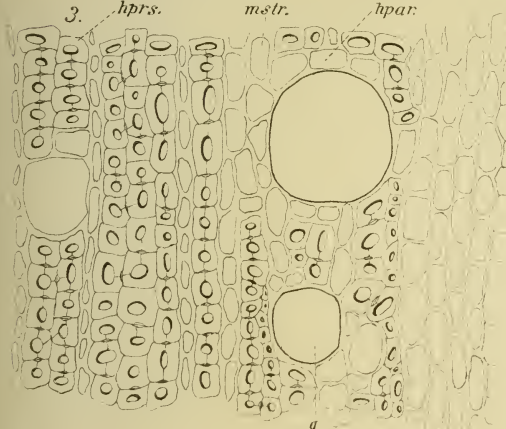 3. hprs. mstr. hpar.
g